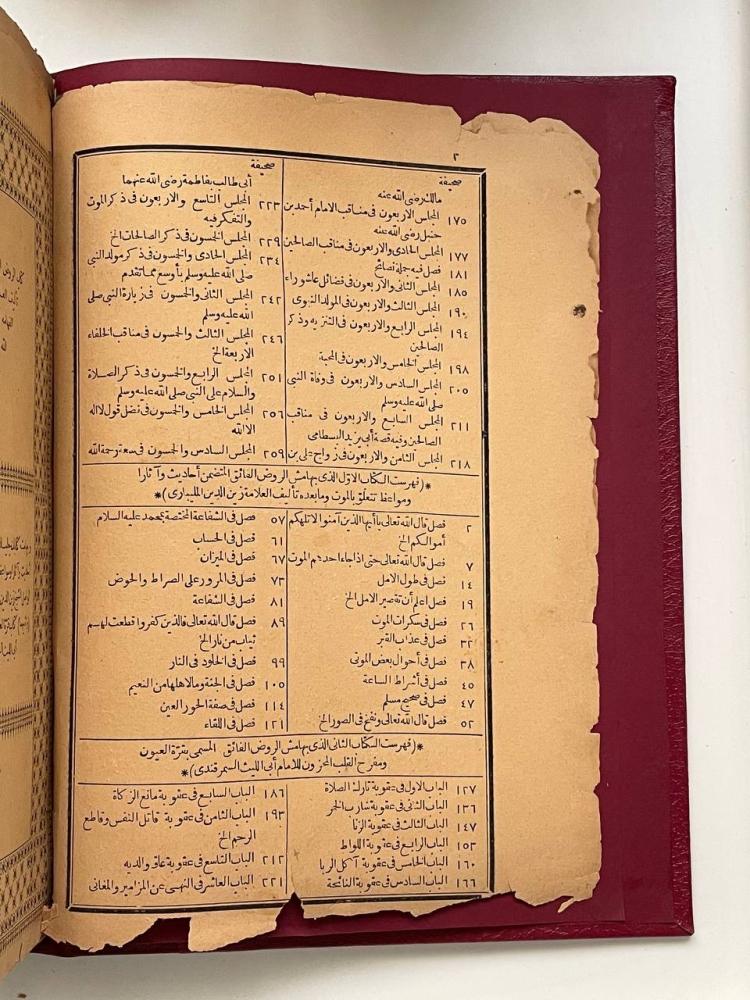 ٢
صحيفة
مالك رضى الله عنه
١٧٥ المجلس الاربعون فى مناقب الامام أحمد بن
حنبل رضى الله عنه
١٧٧ المجلس الحادى والاربعون فى مناقب الصالحين
١٨١ فصل فيه جملة نصائح
١٨٥ المجلس الثانى والاربعون فى فضائل عاشوراء
١٩٠ المجلس الثالث والاربعون فى المولد النبوى
١٩٤ المجلس الرابع والاربعون فى التنزيه وذكر
الصالحين
١٩٨ المجلس الخامس والاربعون فى المحبة
٢٠٥ المجلس السادس والاربعون فى وفاة النبى
صلى الله عليه وسلم
٢١١ المجلس السابع والاربعون فى مناقب
الصالحين وفيه قصة أبى يزيد البسطامى
٢١٨ المجلس الثامن والاربعون فى زواج على بن
صحيفة
أبى طالب بفاطمة رضى الله عنهما
٢٢٣ المجلس التاسع والاربعون فى ذكر الموت
والتفكر فيه
٢٢٩ المجلس الخمسون فى ذكر الصالحات الخ
٢٣٤ المجلس الحادى والخمسون فى ذكر مولد النبى
صلى الله عليه وسلم بأوسع مما تقدم
٢٤٢ المجلس الثانى والخمسون فى زيارة النبى صلى
الله عليه وسلم
٢٤٦ المجلس الثالث والخمسون فى مناقب الخلفاء
الاربعة الخ
٢٥١ المجلس الرابع والخمسون فى ذكر الصلاة
والسلام على النبى صلى الله عليه وسلم
٢٥٦ المجلس الخامس والخمسون فى فضل قول لااله
الاالله
٢٥٩ المجلس السادس والخمسون فى سعة رحمة الله
*(فهرست الكتاب الاول الذى بهامش الروض الفائق المتضمن أحاديث وآثارا
ومواعظ تتعلق بالموت وما بعده تأليف العلامة زين الدين المليبارى)*
٢ فصل قال الله تعالى ياأيها الذين آمنوا لاتلهكم
أموالكم الخ
٧ فصل قال الله تعالى حتى اذا جاء أحدهم الموت
١٤ فصل فى طول الامل
١٩ فصل اعلم أن تقصير الامل الخ
٢٦ فصل فى سكرات الموت
٣٢ فصل فى عذاب القبر
٣٨ فصل فى أحوال بعض الموتى
٤٥ فصل فى أشراط الساعة
٤٧ فصل فى صحيح مسلم
٥٢ فصل قال الله تعالى ونفخ فى الصور الخ
٥٧ فصل فى الشفاعة المختصة بمحمد عليه السلام
٦١ فصل فى الحساب
٦٧ فصل فى الميزان
٧٣ فصل فى المرور على الصراط والحوض
٨١ فصل فى الشفاعة
٨٩ فصل قال الله تعالى فالذين كفروا قطعت لهم
ثياب من نار الخ
٩٩ فصل فى الخلود فى النار
١٠٥ فصل فى الجنة وما لاهلها من النعيم
١١٤ فصل فى صفة الحور العين
١٢١ فصل فى اللقاء
*(فهرست الكتاب الثانى الذى بهامش الروض الفائق المسمى بقرة العيون
ومفرح القلب المحزون للامام أبى الليث السمرقندى)*
١٢٧ الباب الاول فى عقوبة تارك الصلاة
١٣٦ الباب الثانى فى عقوبة شارب الخمر
١٤٧ الباب الثالث فى عقوبة الزنا
١٥٣ الباب الرابع فى عقوبة اللواط
١٦٠ الباب الخامس فى عقوبة آكل الربا
١٦٦ الباب السادس فى عقوبة النائحة
١٨٦ الباب السابع فى عقوبة مانع الزكاة
١٩٣ الباب الثامن فى عقوبة قاتل النفس وقاطع
الرحم الخ
٢١٢ الباب التاسع فى عقوبة عاق والديه
٢٢١ الباب العاشر فى النهى عن المزامير والمغانى